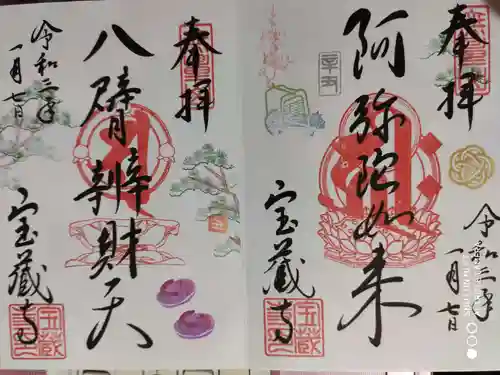 奉拝
阿弥陀如来
宝蔵寺
令和二年
一月七日
奉拝
八臂辨財天
令和二年
一月七日
宝蔵寺